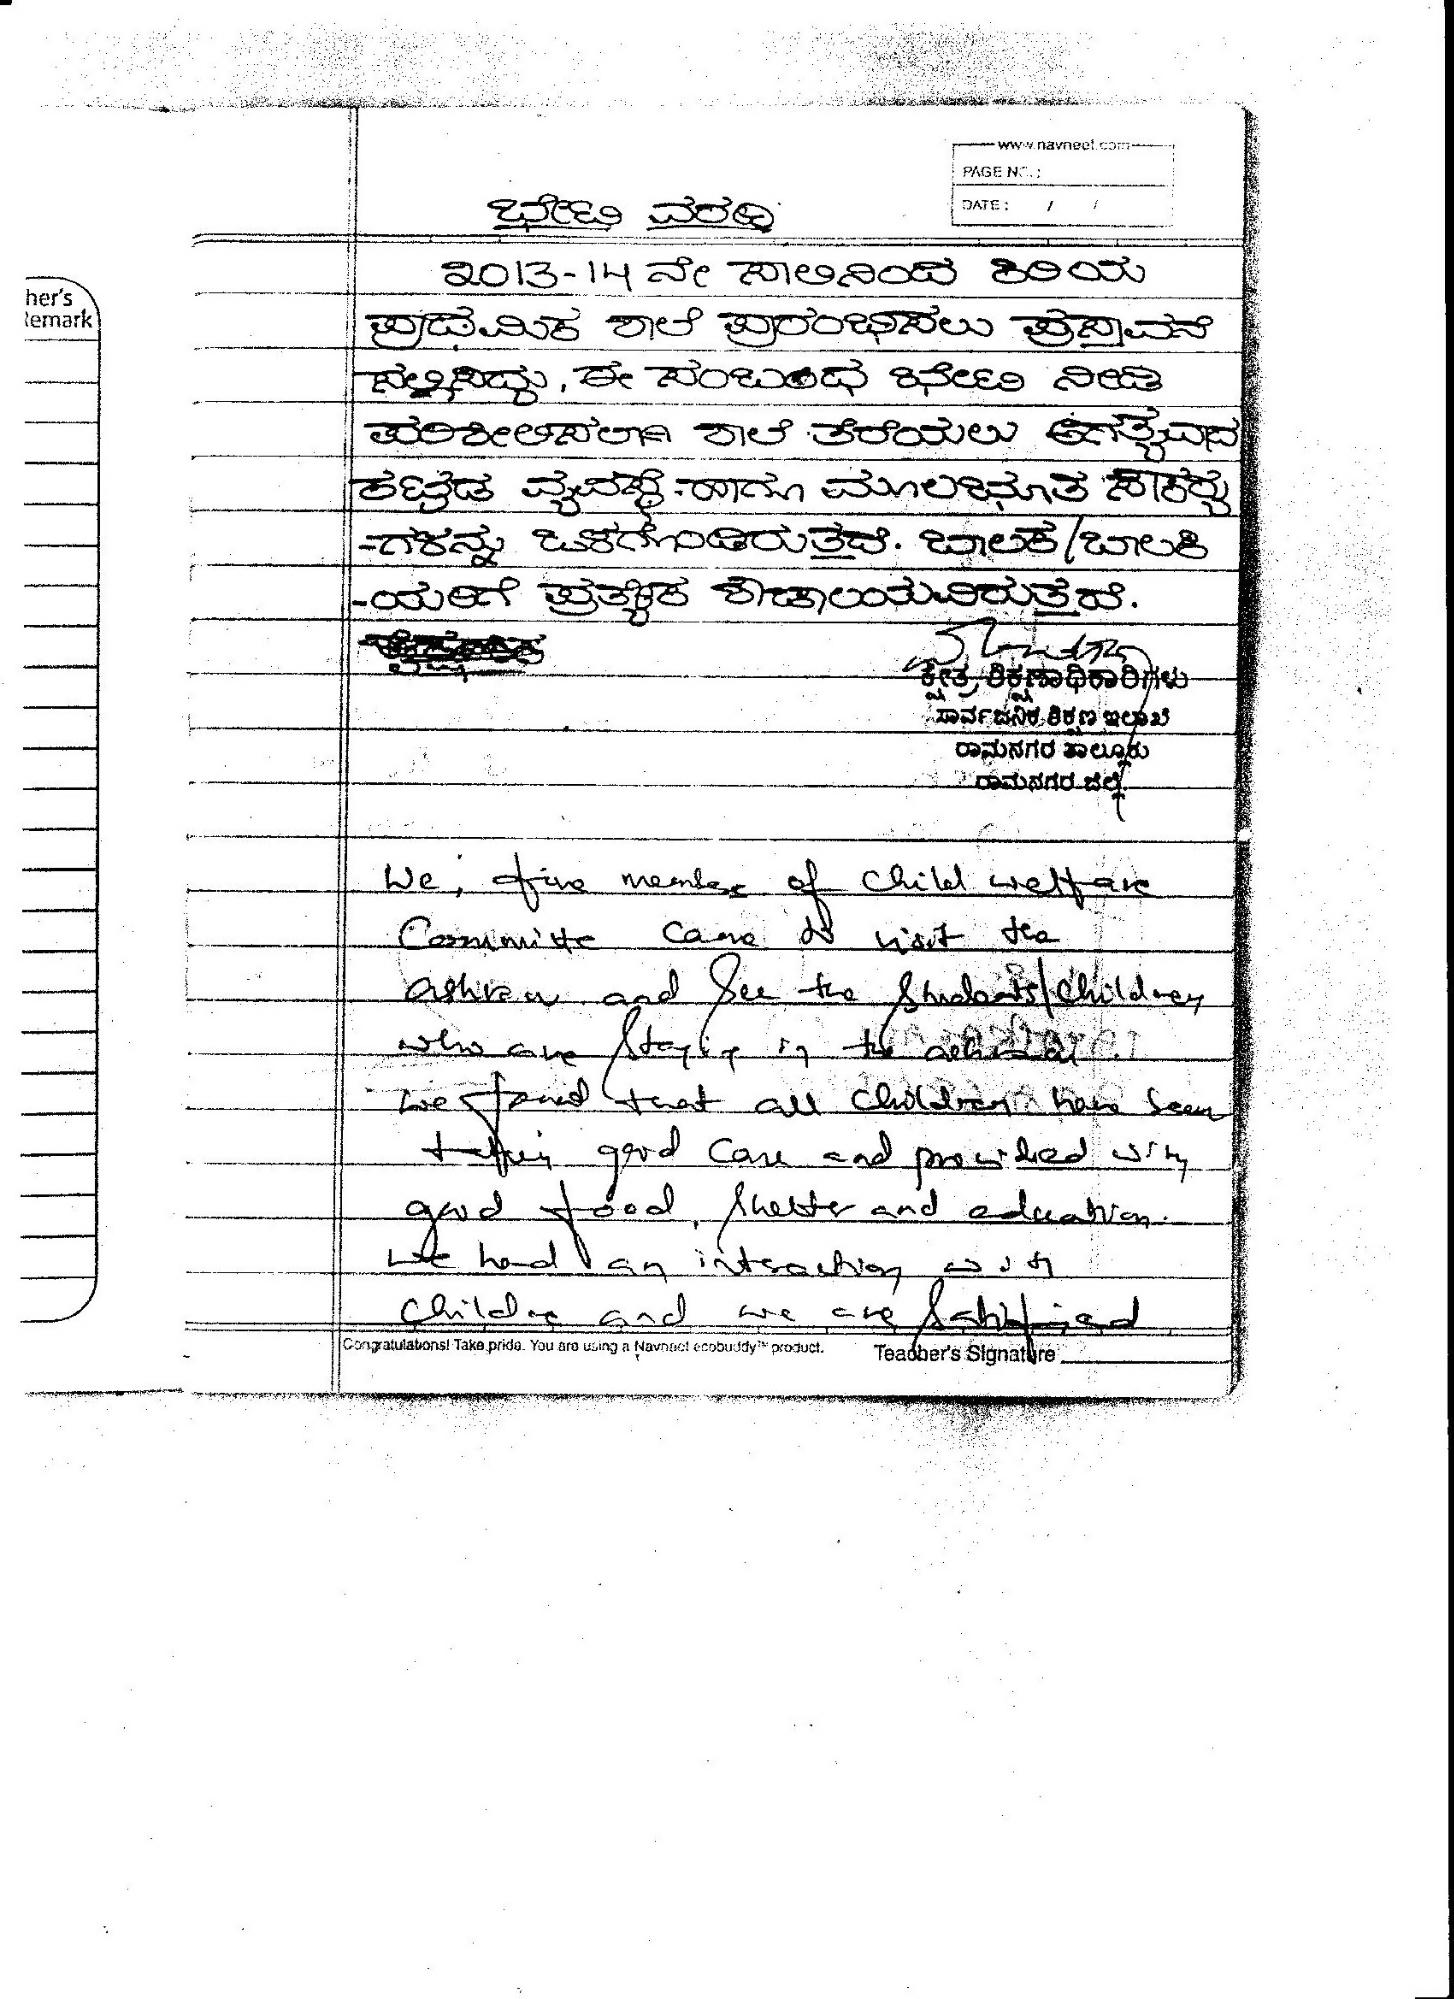 www.navneet.com
PAGE NO.:
DATE: / /
ಭೇಟಿ ವರದಿ
2013-14 ನೇ ಸಾಲಿನಿಂದ ಕಿರಿಯ
ಪ್ರಾಥಮಿಕ ಶಾಲೆ ಪ್ರಾರಂಭಿಸಲು ಪ್ರಸ್ತಾವನೆ
ಸಲ್ಲಿಸಿದ್ದು, ಈ ಸಂಬಂಧ ಭೇಟಿ ನೀಡಿ
ಪರಿಶೀಲಿಸಲಾಗಿ ಶಾಲೆ ತೆರೆಯಲು ಅಗತ್ಯವಾದ
ಕಟ್ಟಡ ವ್ಯವಸ್ಥೆ ಹಾಗೂ ಮೂಲಭೂತ ಸೌಕರ್ಯ
-ಗಳನ್ನು ಒಳಗೊಂಡಿರುತ್ತದೆ. ಬಾಲಕ/ಬಾಲಕಿ
-ಯರಿಗೆ ಪ್ರತ್ಯೇಕ ಶೌಚಾಲಯವಿರುತ್ತದೆ.
ಕ್ಷೇತ್ರ ಶಿಕ್ಷಣಾಧಿಕಾರಿಗಳು
ಸಾರ್ವಜನಿಕ ಶಿಕ್ಷಣ ಇಲಾಖೆ
ರಾಮನಗರ ತಾಲ್ಲೂಕು
ರಾಮನಗರ ಜಿಲ್ಲೆ
her's
Remark
We, five member of child welfare
Committe came to visit the
ashram and see the students/children
who are staying in the ashram.
We found that all children have been
taking good care and provided with
good food, shelter and education.
We had an interaction with
children and we are satisfied
Congratulations! Take pride. You are using a Navneet ecobuddy™ product.
Teacher's Signature